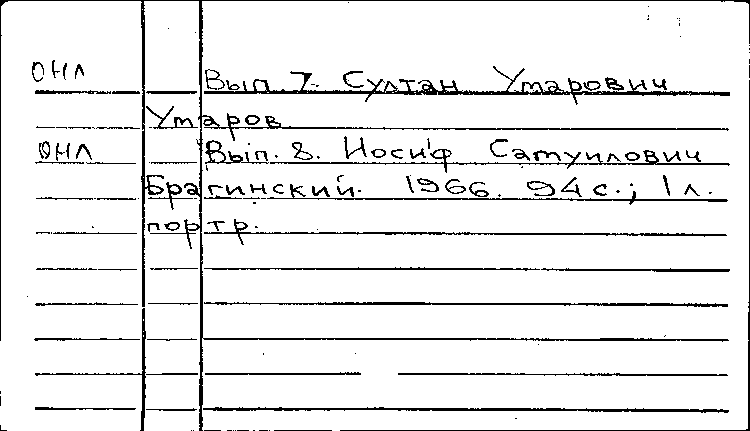 ОНЛ Вып. 7. Султан Умарович
Умаров
ОНЛ Вып. 8. Иосиф Самуилович
Брагинский. 1966. 94 с.; 1 л.
портр.